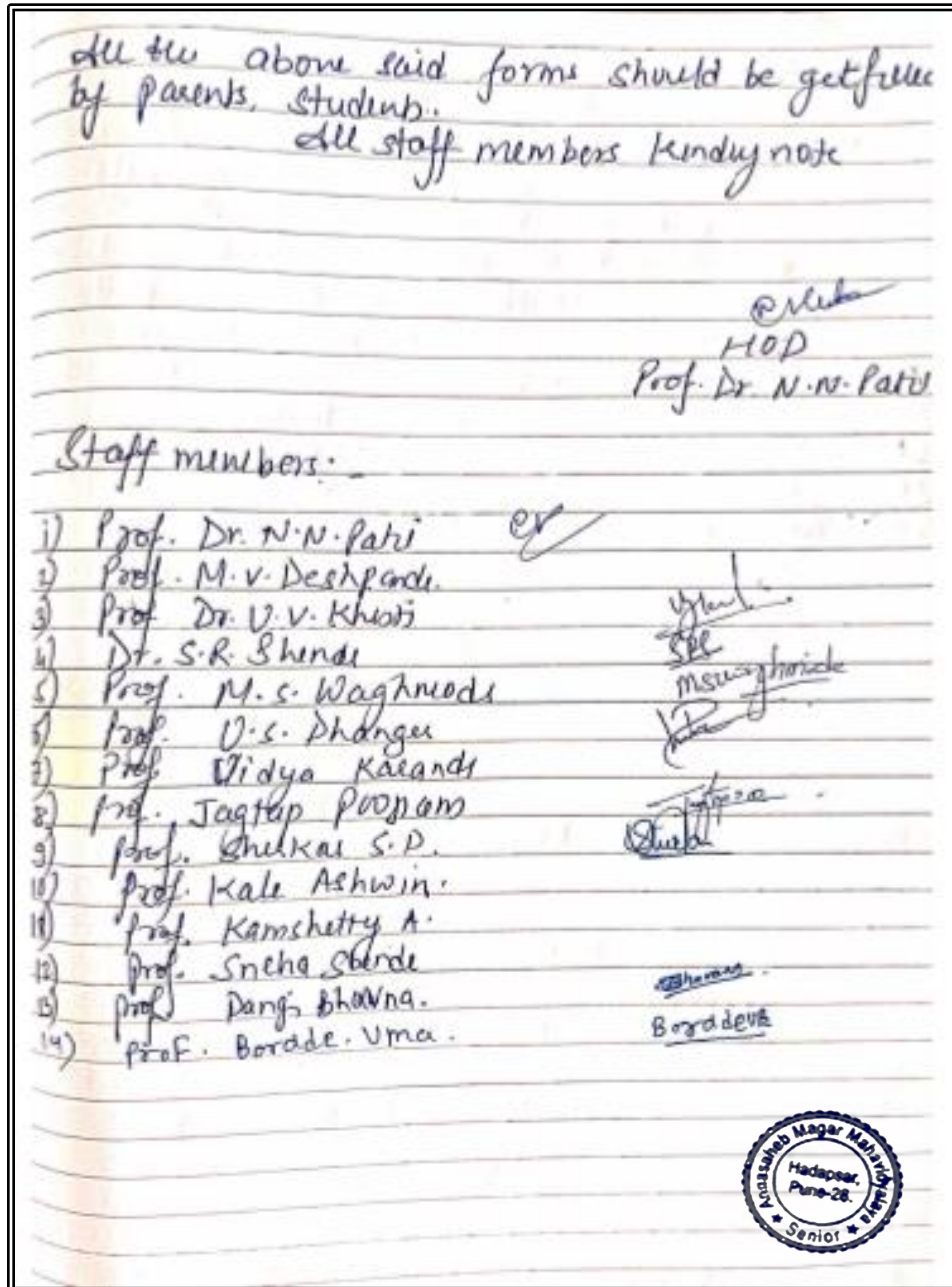 All the above said forms should be getfilled
by parents, students.
All staff members kindly note
HOD
Prof. Dr. N.N. Patil
Staff members:-
1) Prof. Dr. N.N. Patil
2) Prof. M.V. Deshpande.
3) Prof Dr. V.V. Khisti
4) Dr. S.R. Shende
5) Prof. M.S. Waghmode
6) Prof. U.S. Dhanger
7) Prof Vidya Karande
8) Prof. Jagtap Poonam
9) Prof. Shelkar S.P.
10) Prof. Kale Ashwin.
11) Prof. Kamshetty A.
12) Prof. Sneha Shende
13) Prof Dangi Bhavna.
14) Prof. Bordde. Uma.
mswaghmode
Borddeua
Annasaheb Magar Mahavidyalaya
Hadapsar,
Pune-28.
★ Senior ★